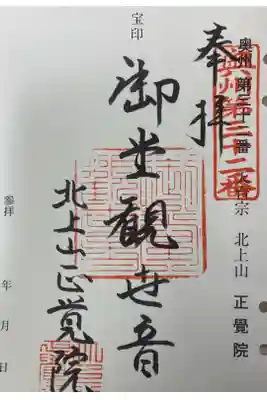 奥州 第三十二番 天台宗 北上山 正覺院
奥州第三十二番
奉拝
宝印
御堂観世音
北上山正覚院
參拝 年 月 日